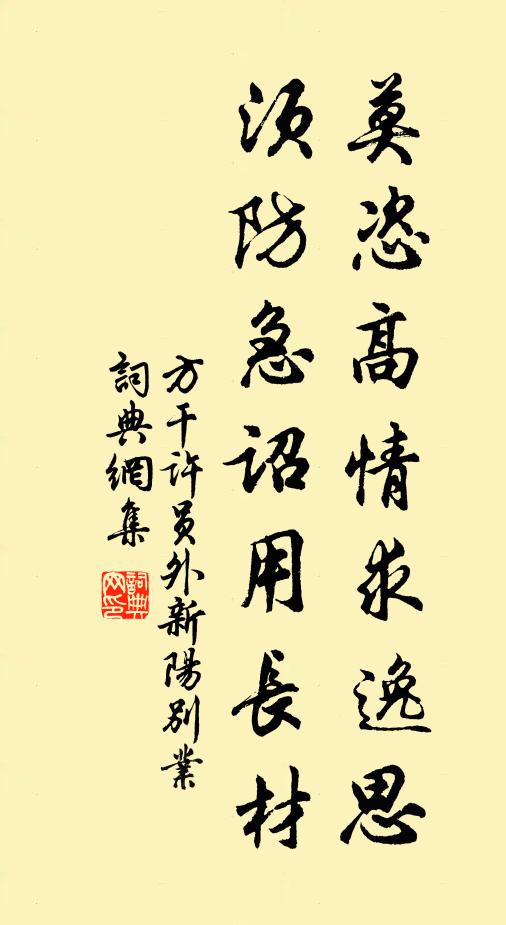 莫恣高情求逸思
須防急詔用長材
方干許員外新陽別業
詞典網集
詞典网印